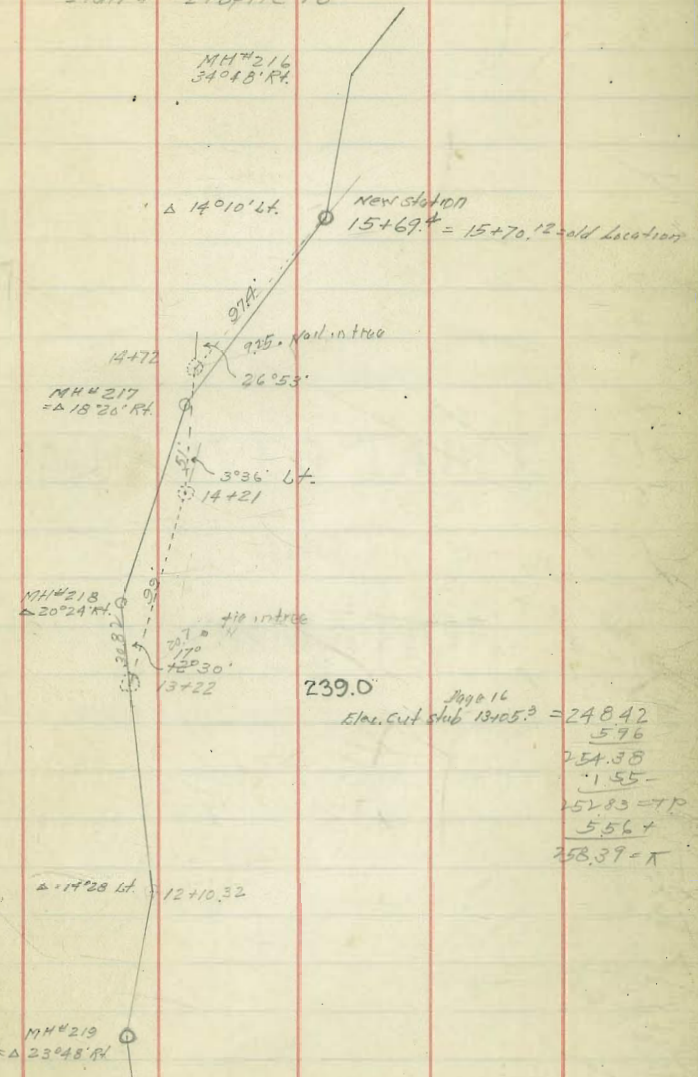 MH#216
34°48' Rt.
Δ 14°10' Lt.
New station
15+69.4 = 15+70.12 = old Location
97.4'
9.25 • Nail in tree
14+72
26°53'
MH#217
=Δ 18°20' Rt.
51'
3°36' Lt.
14+21
MH#218
Δ 20°24' Rt.
99'
30.82
tie in tree
17°
+2°30'
13+22
239.0
Page 16
Elev. Cut stub 13+05.3 = 248.42
5.96
254.38
1.55-
252.83 = T.P.
5.56+
258.39 = π
Δ = 14°28' Lt.
12+10.32
MH#219
=Δ 23°48' Rt.